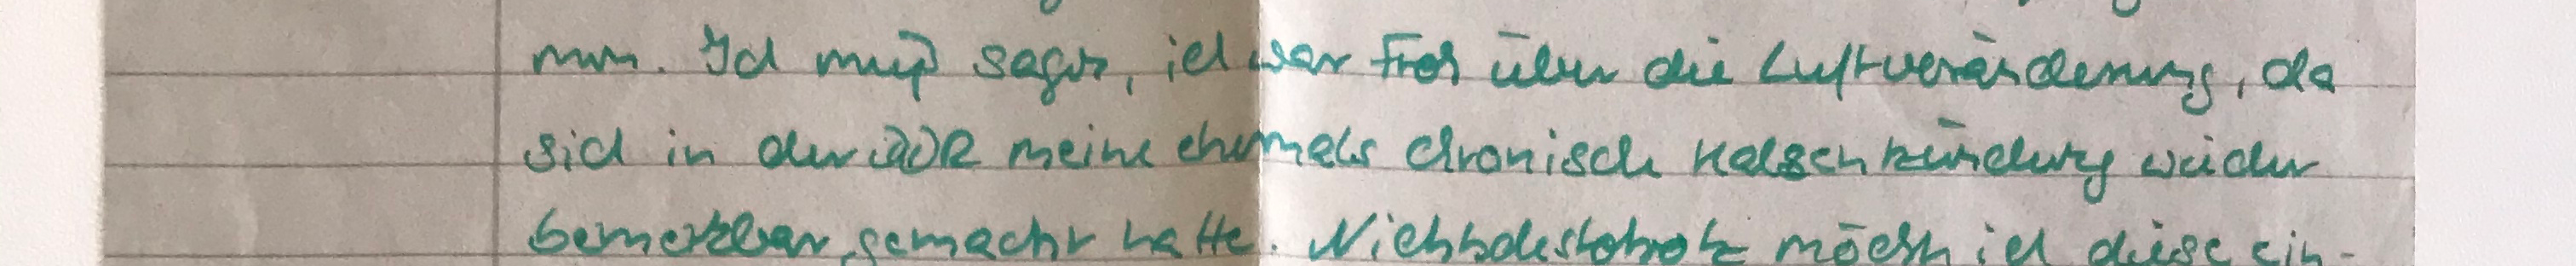 nun. Ich muß sagen, ich war froh über die Luftveränderung, da
sich in der DDR meine ehemals chronische Halsentzündung wieder
bemerkbar gemacht hatte. Nichtsdestotrotz möchte ich diese ein-